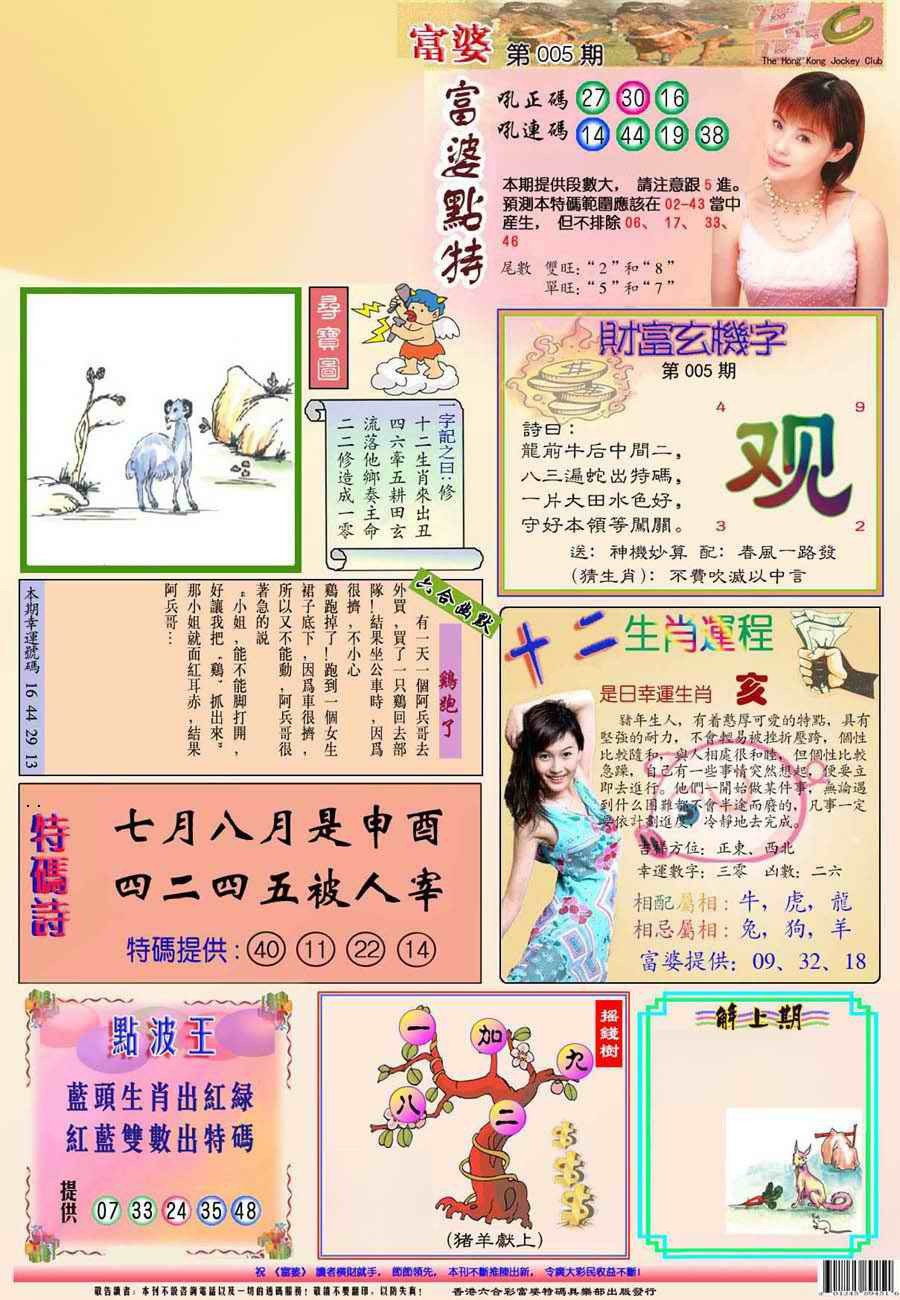 富婆 第 005 期
The Hong Kong Jockey Club
富婆點特
吼正碼 27 30 16
吼連碼 14 44 19 38
本期提供段數大， 請注意跟5進。
預測本特碼範圍應該在 02-43 當中
産生， 但不排除 06、 17、 33、
46
尾數 雙旺：“2”和“8”
單旺：“5”和“7”
尋寶圖
一字記之曰：修
十二生肖來出丑
四六牽五耕田玄
流落他鄉奏主命
二二修造成一零
財富玄機字
第 005 期
詩曰：
龍前牛后中間二，
八三遍蛇出特碼，
一片大田水色好，
守好本領等闖關。
4 9
观
3 2
送： 神機妙算 配： 春風一路發
(猜生肖)： 不費吹滅以中言
六合幽默
鷄跑了
有一天一個阿兵哥去
外買，買了一只鷄回去部
隊！結果坐公車時，因爲
很擠，不小心
鷄跑掉了！跑到一個女生
裙子底下，因爲車很擠，
所以又不能動，阿兵哥很
著急的說
“小姐，能不能脚打開，
好讓我把“鷄”抓出來”
那小姐就面紅耳赤，結果
阿兵哥…
本期幸運號碼 16 44 29 13
十二生肖運程
是日幸運生肖 亥
豬年生人，有着憨厚可愛的特點，具有
堅強的耐力，不會輕易被挫折壓跨，個性
比較隨和，與人相處很和睦，但個性比較
急躁，自己有一些事情突然想起，便要立
即去進行。他們一開始做某件事，無論遇
到什么困難都不會半途而廢的，凡事一定
要依計劃進度，冷靜地去完成。
吉祥方位：正東、西北
幸運數字：三零 凶數：二六
相配屬相：牛，虎，龍
相忌屬相：兔，狗，羊
富婆提供：09、32、18
特碼詩
七月八月是申酉
四二四五被人宰
特碼提供：40 11 22 14
點波王
藍頭生肖出紅緑
紅藍雙數出特碼
提供 07 33 24 35 48
摇錢樹
一 加 九
八 二
(猪羊獻上)
解上期
祝 《富婆》 讀者橫財就手， 節節領先， 本刊不斷推陳出新， 令廣大彩民收益不斷！
敬告讀者：本刊不設咨詢電話以及一切的透碼服務！敬請不要翻印，以防失真！ 香港六合彩富婆特碼具樂部出版發行